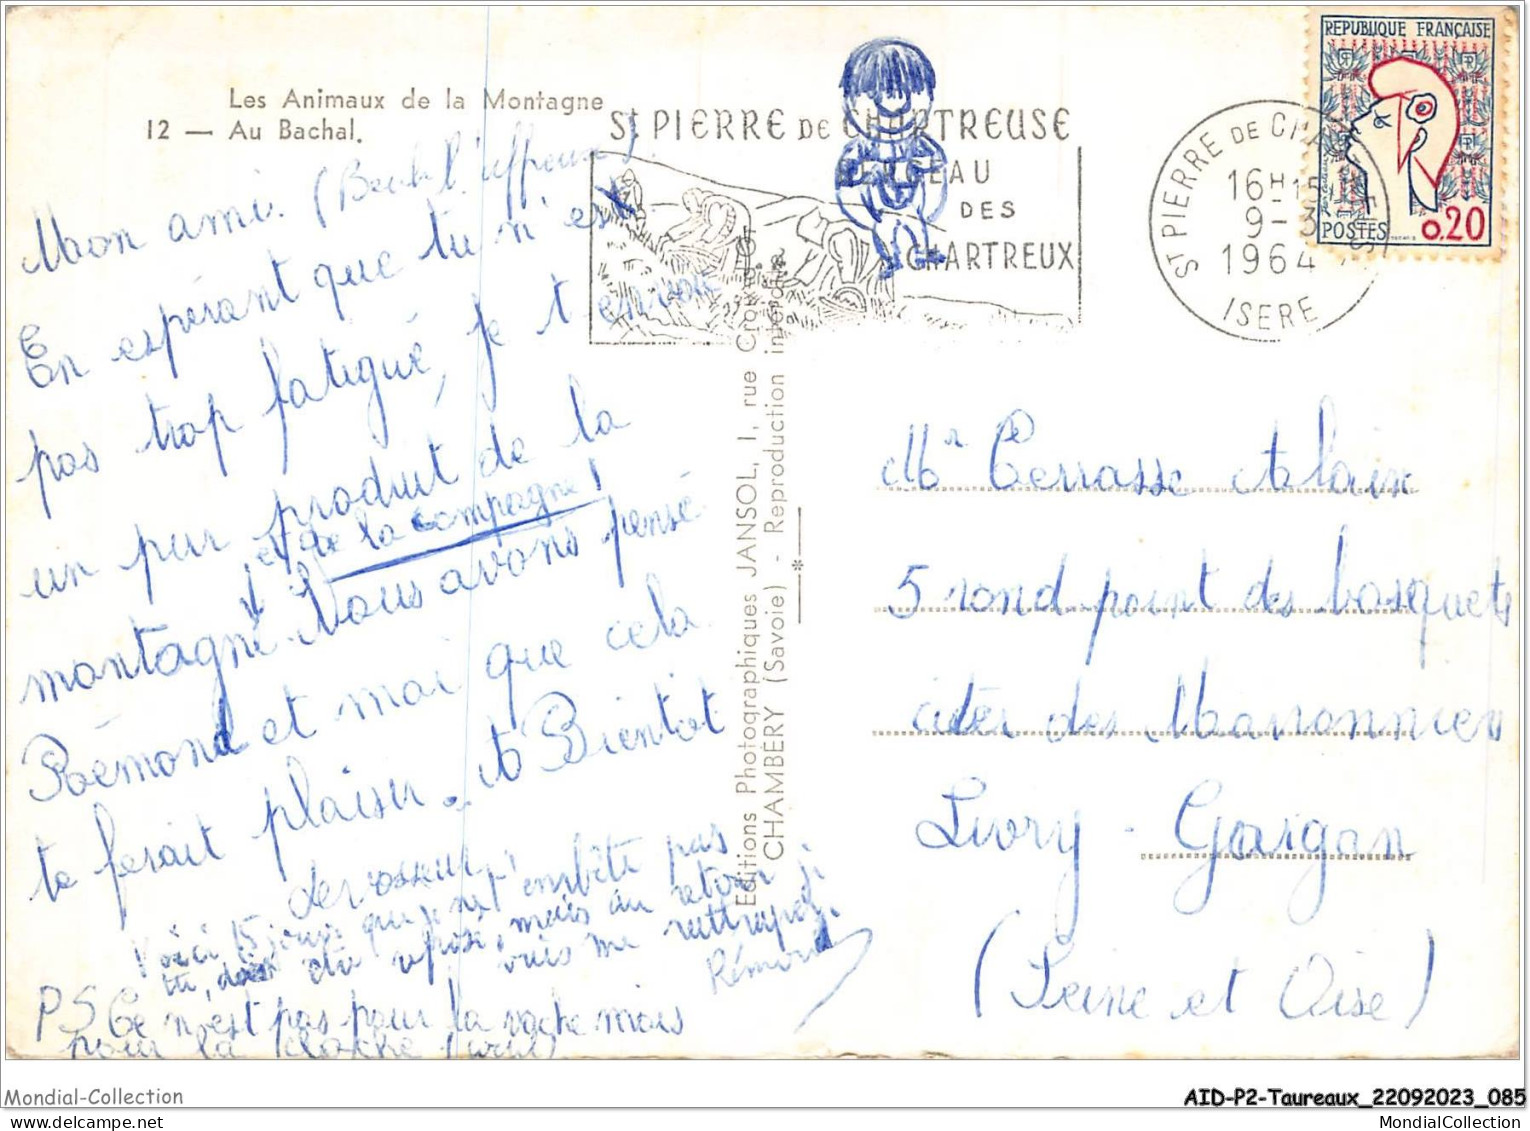 Les Animaux de la Montagne
12 — Au Bachal.
St PIERRE DE CHARTREUSE
BERCEAU
DES
CHARTREUX
ST PIERRE DE CHARTREUSE
16H15
9-3
1964
ISERE
REPUBLIQUE FRANÇAISE
POSTES
0,20
Mon ami. (Bachal l'affreux).
En espérant que tu n'est
pas trop fatigué, je t'envoie
un pur produit de la
et de la compagne!
montagne. Nous avons pensé
Rémond et moi que cela
te ferait plaisir. A Bientôt
Levasseur
Voici 15 jours qu'on t' embête pas
tu dois être reposé, mais au retour je
vais me rattraper.
Rémond
PS Ce n'est pas pour la vache mais
pour la cloche
Editions Photographiques JANSOL, 1, rue Croix
CHAMBÉRY (Savoie) - Reproduction interdite
Mr Terrasse Alain
5 rond-point des bosquets
citer des Maronnier
Livry - Gargan
(Seine et Oise)
Mondial-Collection
AID-P2-Taureaux_22092023_085
MondialCollection